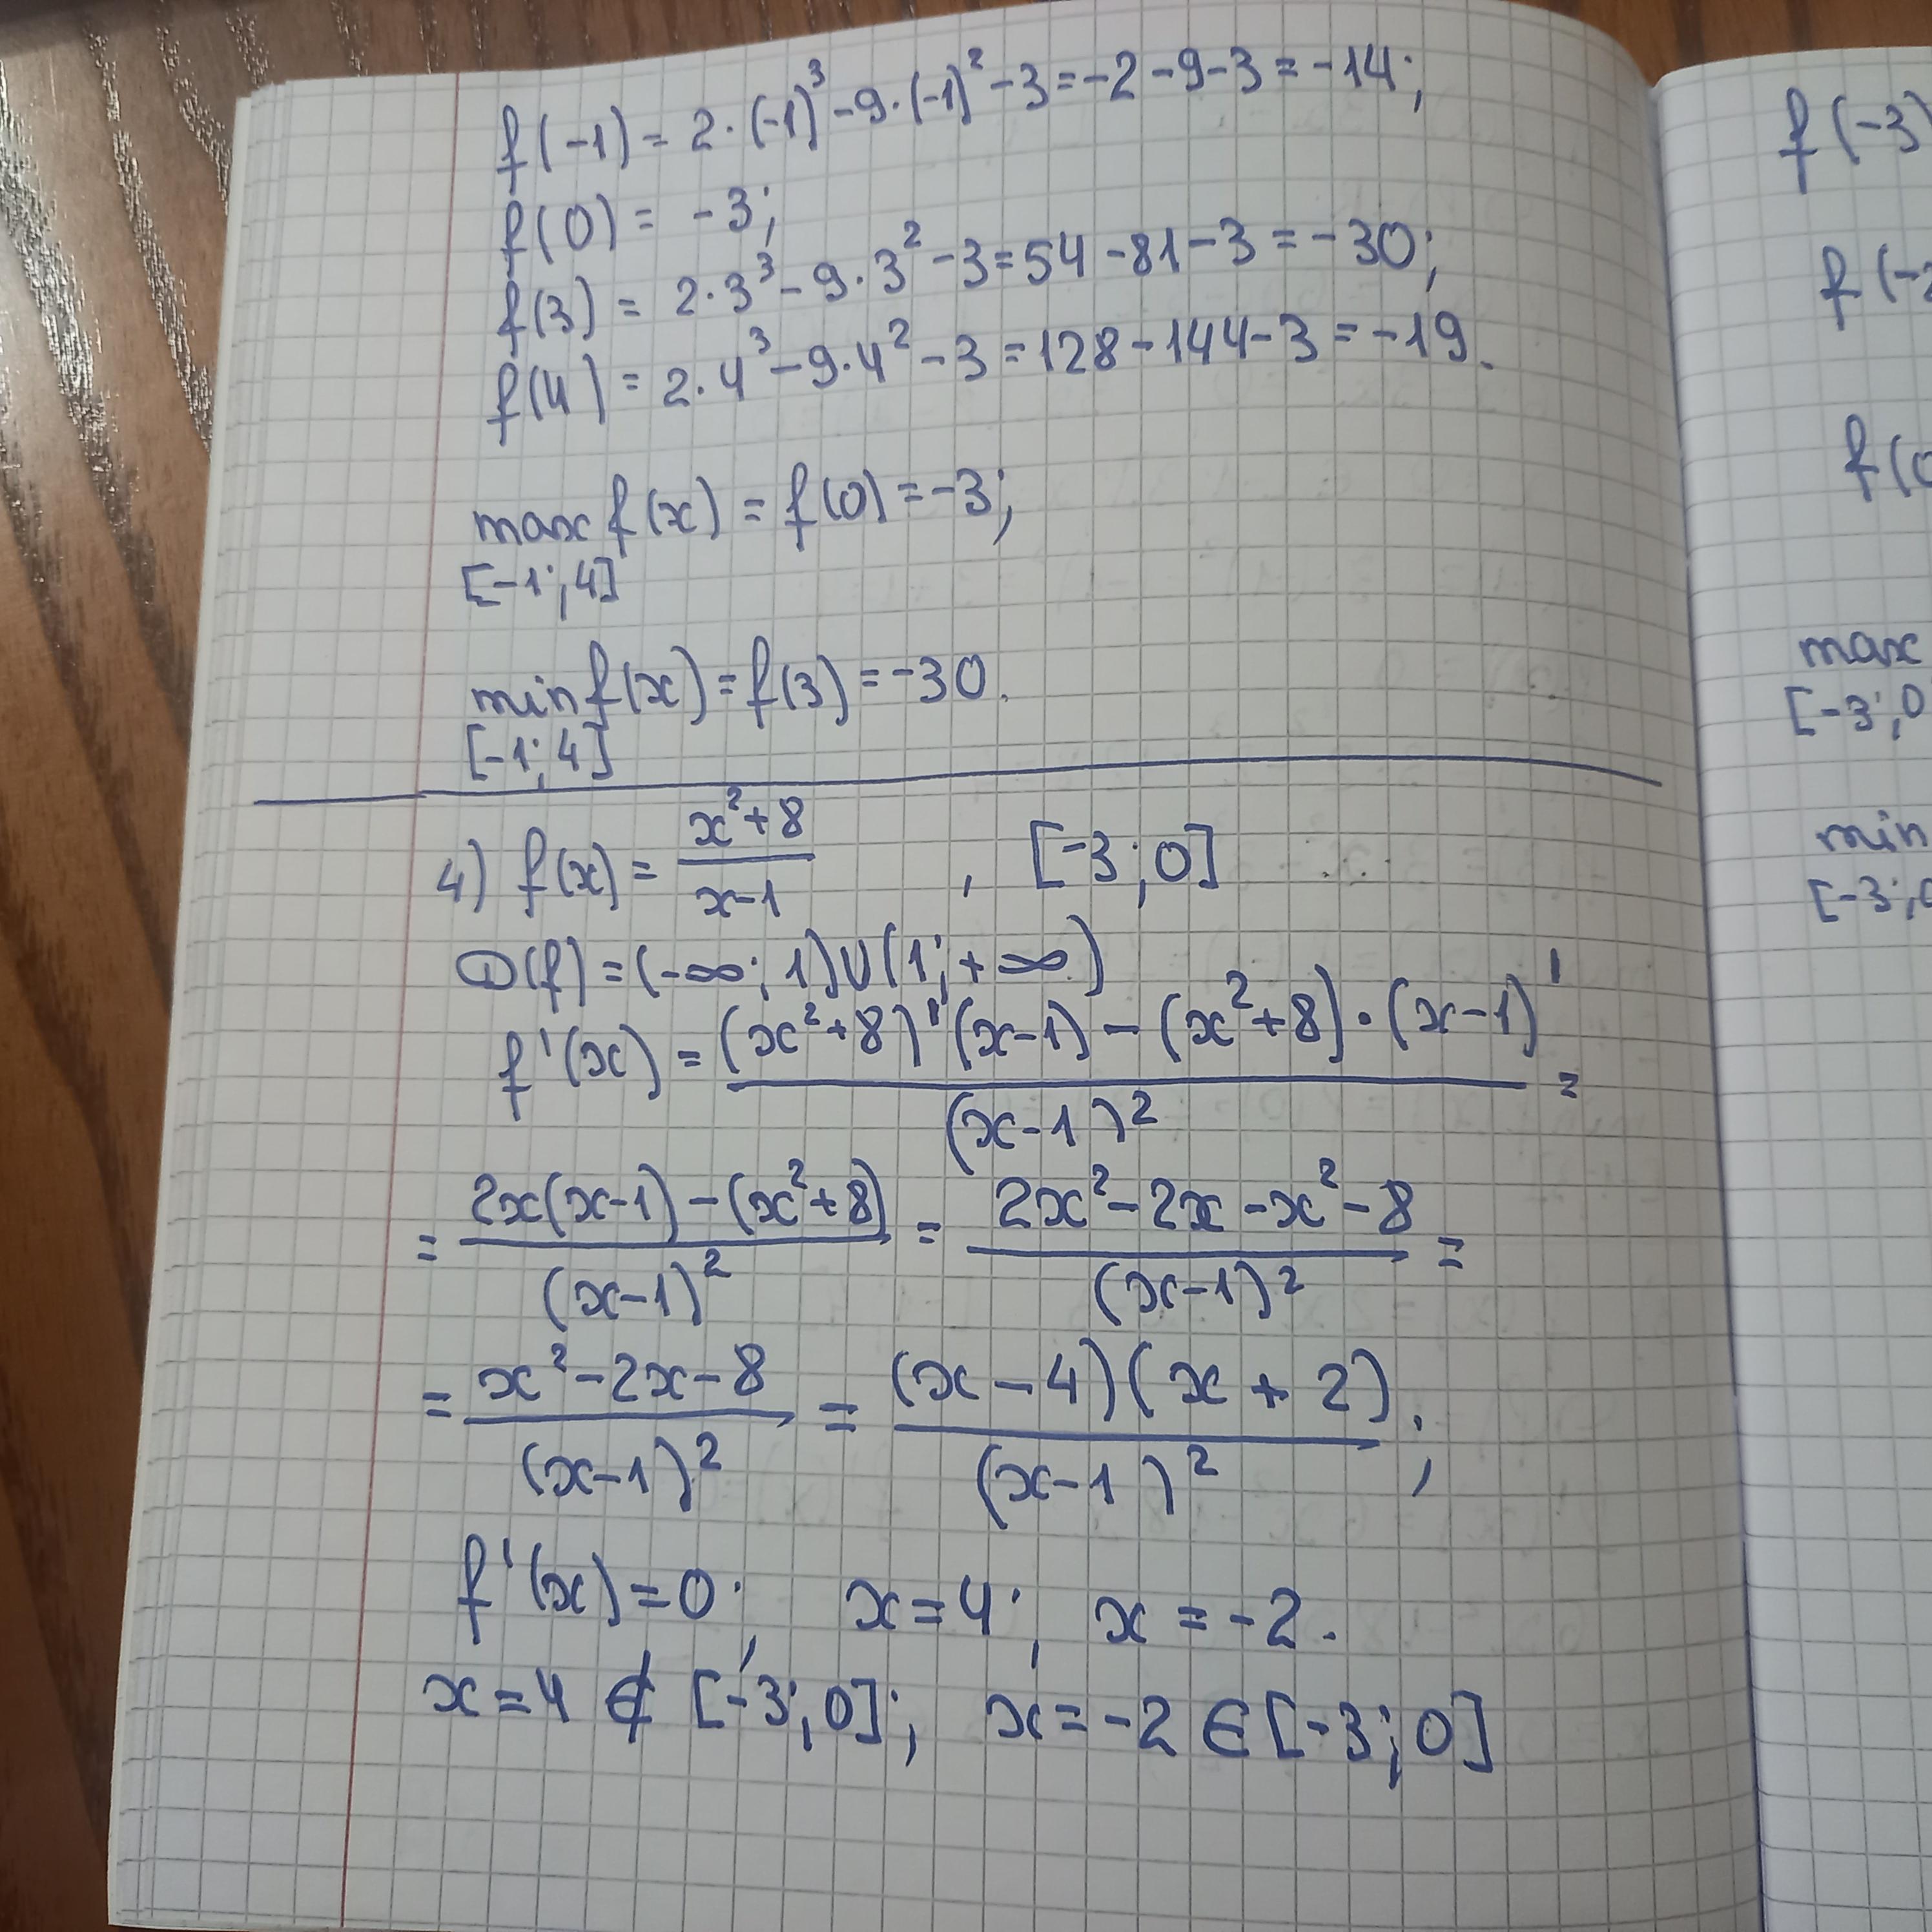 f(-1) = 2·(-1)³-9·(-1)²-3=-2-9-3=-14;
f(0) = -3;
f(3) = 2·3³-9·3²-3=54-81-3=-30;
f(4) = 2·4³-9·4²-3=128-144-3=-19.
max f(x) = f(0)=-3;
[-1;4]
min f(x)=f(3)=-30.
[-1;4]
4) f(x)= (x²+8)/(x-1) , [-3;0]
D(f)=(-∞;1)U(1;+∞)
f'(x) = ((x²+8)'(x-1)-(x²+8)·(x-1)')/(x-1)² =
= (2x(x-1)-(x²+8))/(x-1)² = (2x²-2x-x²-8)/(x-1)² =
= (x²-2x-8)/(x-1)² = ((x-4)(x+2))/(x-1)² ;
f'(x)=0; x=4; x=-2.
x=4 ∉ [-3;0]; x=-2 ∈ [-3;0]
f(-3)
f(-2
f(0
max
[-3;0
min
[-3;0